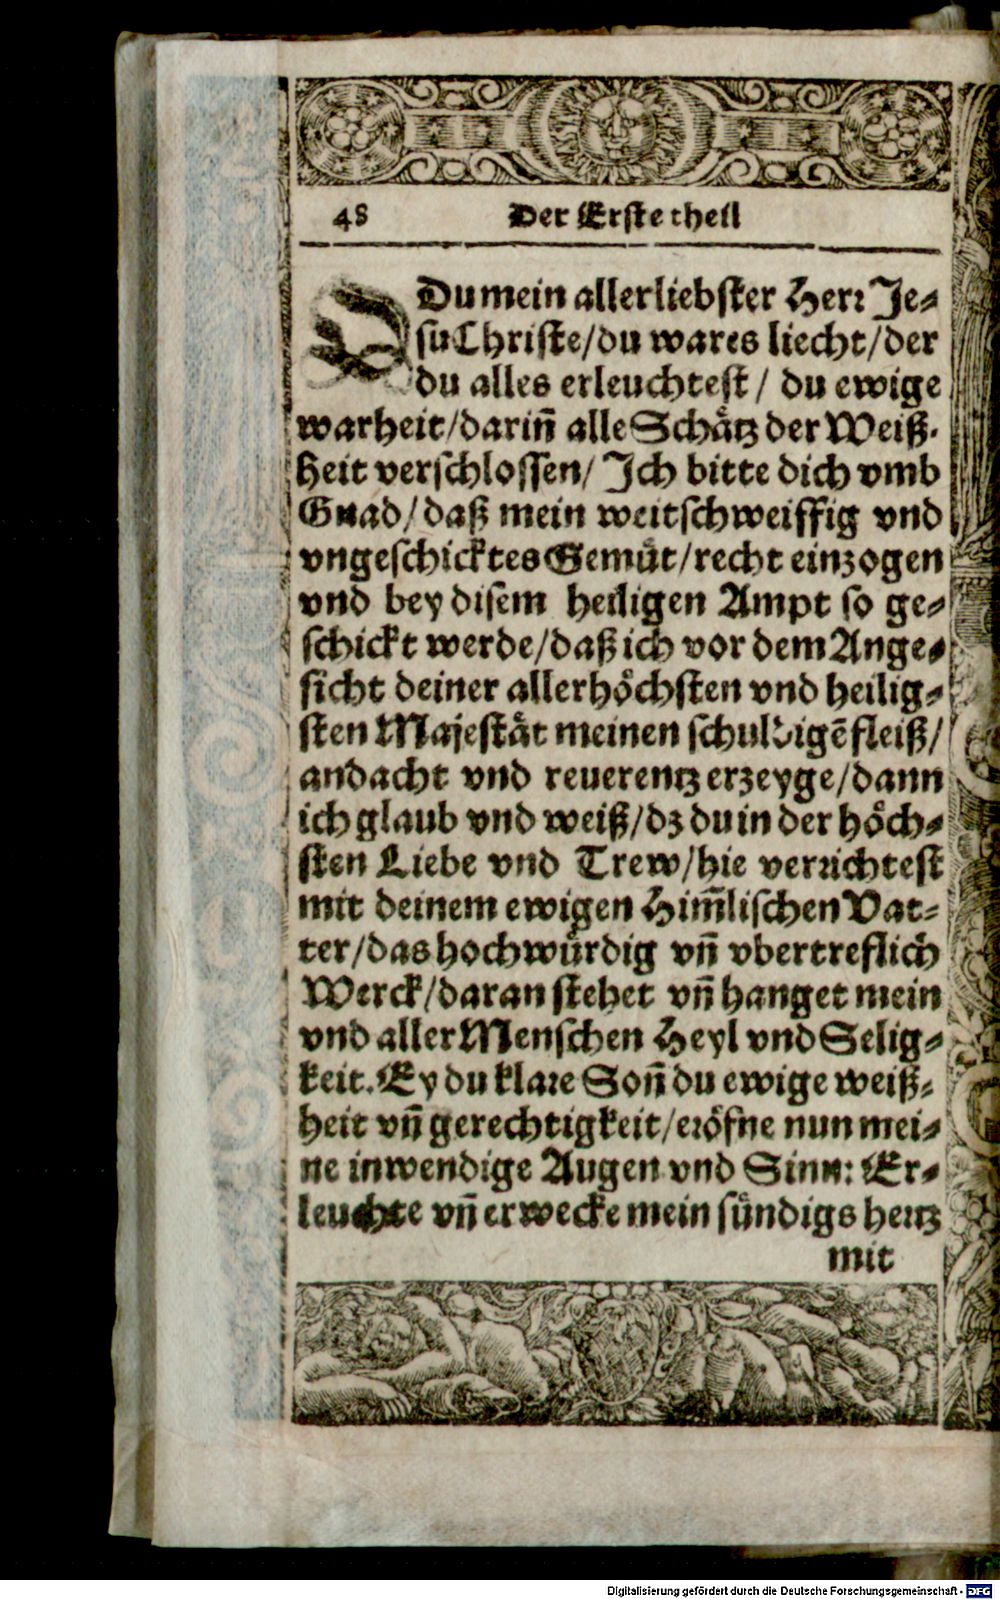 48 Der Erste theil
O Du mein allerliebster Herr Je⸗
su Christe/du wares liecht/der
du alles erleuchtest/ du ewige
warheit/darin̄ alle Schaͤtz der Weiß⸗
heit verschlossen/ Ich bitte dich vmb
Gnad/daß mein weitschweiffig vnd
vngeschicktes Gemuͤt/recht einzogen
vnd bey disem heiligen Ampt so ge⸗
schickt werde/daß ich vor dem Ange⸗
sicht deiner allerhoͤchsten vnd heilig⸗
sten Majestaͤt meinen schuldigē fleiß/
andacht vnd reuerentz erzeyge/dann
ich glaub vnd weiß/dz du in der hoͤch⸗
sten Liebe vnd Trew/hie verrichtest
mit deinem ewigen Him̄lischen Vat⸗
ter/das hochwuͤrdig vn̄ vbertreflich
Werck/daran stehet vn̄ hanget mein
vnd aller Menschen Heyl vnd Selig⸗
keit. Ey du klare Son̄ du ewige weiß⸗
heit vn̄ gerechtigkeit/eroͤfne nun mei⸗
ne inwendige Augen vnd Sinn: Er⸗
leuchte vn̄ erwecke mein suͤndigs hertz
mit
Digitalisierung gefördert durch die Deutsche Forschungsgemeinschaft - DFG